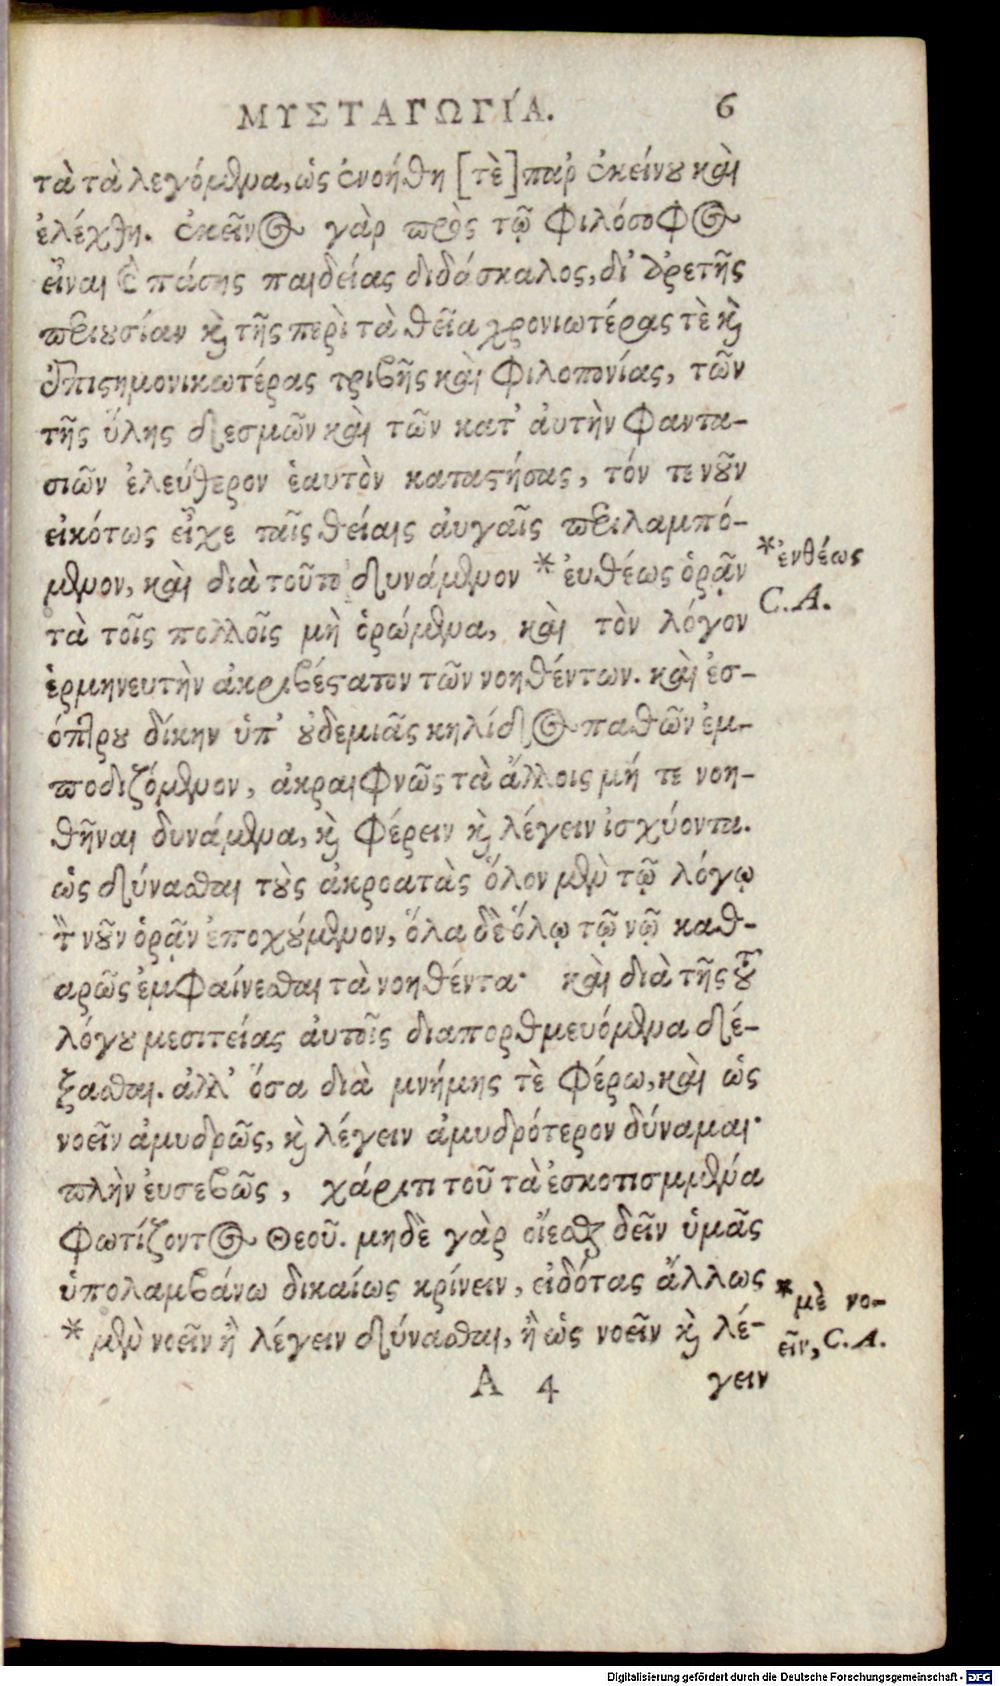 ΜΥΣΤΑΓΩΓΊΑ. 6
τὰ τὰ λεγόμενα, ὡς ἐνοήθη [τὲ] παρ ἐκείνου καὶ
ἐλέχθη. ἐκεῖνος γὰρ πρὸς τῷ φιλόσοφος
εἶναι ὁ πάσης παιδείας διδάσκαλος, δι' ἀρετῆς
περιουσίαν καὶ τῆς περὶ τὰ θεῖα χρονιωτέρας τὲ καὶ
ἐπιστημονικωτέρας τριβῆς καὶ φιλοπονίας, τῶν
τῆς ὕλης δεσμῶν καὶ τῶν κατ' ἀυτὴν φαντα-
σιῶν ἐλεύθερον ἑαυτὸν καταστήσας, τόν τε νοῦν
εἰκότως εἶχε ταῖς θείαις ἀυγαῖς περιλαμπό-
μενον, καὶ διὰ τοῦτο δυνάμενον * ἐυθέως ὁρᾷν
*ἐνθέως
C. A.
τὰ τοῖς πολλοῖς μὴ ὁρώμενα, καὶ τὸν λόγον
ἑρμηνευτὴν ἀκριβέστατον τῶν νοηθέντων. καὶ ἐσ-
όπτρου δίκην ὑπ' οὐδεμιᾶς κηλίδος παθῶν ἐμ-
ποδιζόμενον, ἀκραιφνῶς τὰ ἄλλοις μή τε νοη-
θῆναι δυνάμενα, καὶ φέρειν καὶ λέγειν ἰσχύοντα.
ὡς δύνασθαι τοὺς ἀκροατὰς ὅλον μὲν τῷ λόγῳ
τὸν νοῦν ὁρᾷν ἐποχούμενον, ὅλα δὲ ὅλῳ τῷ νῷ καθ-
αρῶς ἐμφαίνεσθαι τὰ νοηθέντα· καὶ διὰ τῆς τοῦ
λόγου μεσιτείας ἀυτοῖς διαπορθμευόμενα δέ-
ξασθαι. ἀλλ' ὅσα διὰ μνήμης τὲ φέρω, καὶ ὡς
νοεῖν ἀμυδρῶς, καὶ λέγειν ἀμυδρότερον δύναμαι·
πλὴν ἐυσεβῶς, χάριτι τοῦ τὰ ἐσκοτισμμένα
φωτίζοντος Θεοῦ. μηδὲ γὰρ οἴεσθαι δεῖν ὑμᾶς
ὑπολαμβάνω δικαίως κρίνειν, εἰδότας ἄλλως
* μὲν νοεῖν ἢ λέγειν δύνασθαι, ἢ ὡς νοεῖν καὶ λέ-
*μὲ νο-
εῖν, C. A.
A 4 γειν
Digitalisierung gefördert durch die Deutsche Forschungsgemeinschaft - DFG